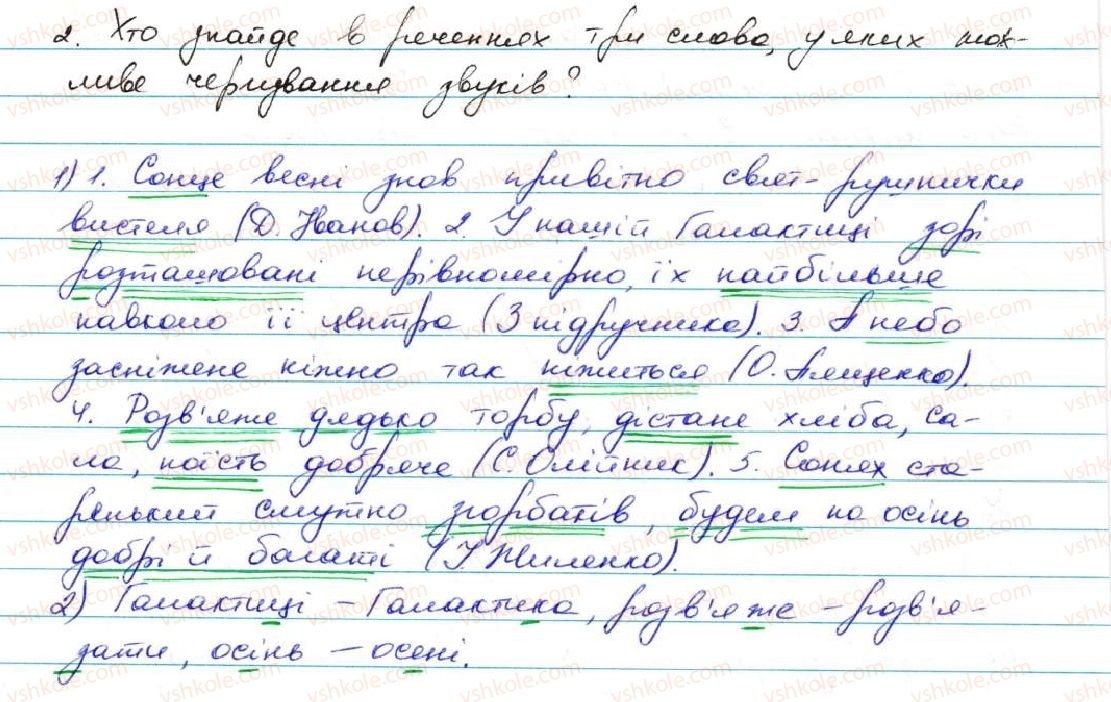 2. Хто знайде в реченнях три слова, у яких мож-
ливе чергування звуків?
1) 1. Сонце весні знов привітно свят-рушнички
вистеля (Д. Іванов). 2. У нашій Галактиці зорі
розташовані нерівномірно, їх найбільше
навколо її центра (З підручника). 3. А небо
засніжене ніжно так ніжиться (О. Ященко).
4. Розв'яже дядько торбу, дістане хліба, са-
ла, поїсть добряче (С. Олійник). 5. Сонях ста-
ренький смутно згорбатів, будем на осінь
добрі й багаті (І. Жиленко).
2) Галактиці – Галактика, розв'яже – розв'я-
зати, осінь – осені.